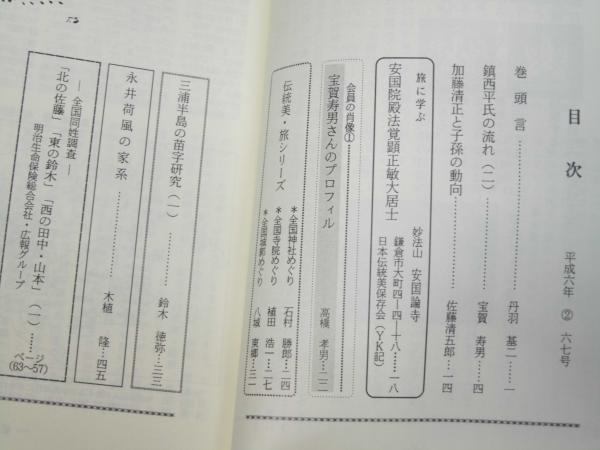 目次
平成六年 ② 六七号
巻頭言……………丹羽基二……一
鎮西平氏の流れ(二)……………宝賀寿男……四
加藤清正と子孫の動向……………佐藤清五郎…一四
旅に学ぶ
安国院殿法覚顕正敏大居士
妙法山 安国論寺
鎌倉市大町四―四―十八……一八
日本伝統美保存会(YK記)
会員の肖像①
宝賀寿男さんのプロフィル
高橋孝男…二二
伝統美・旅シリーズ
*全国神社めぐり 石村勝郎…二四
*全国寺院めぐり 植田浩一…二七
*全国城郭めぐり 八城東郷…三一
三浦半島の苗字研究(一)……………鈴木徳弥…三三
永井荷風の家系……………木植隆…四五
―全国同姓調査―
「北の佐藤」「東の鈴木」「西の田中・山本」(一)……ページ(63〜57)
明治生命保険総合会社・広報グループ